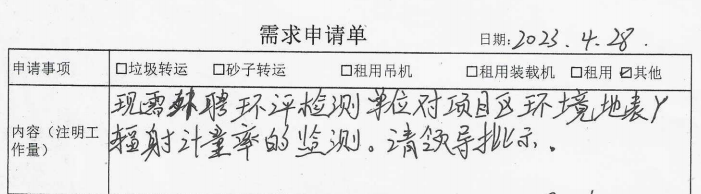 需求申请单
日期：2023.4.28.
申请事项 □垃圾转运 □砂子转运 □租用吊机 □租用装载机 □租用 ☑其他
内容（注明工作量）
现需外聘环评检测单位对项目区环境地表γ
辐射计量率的监测。请领导批示.